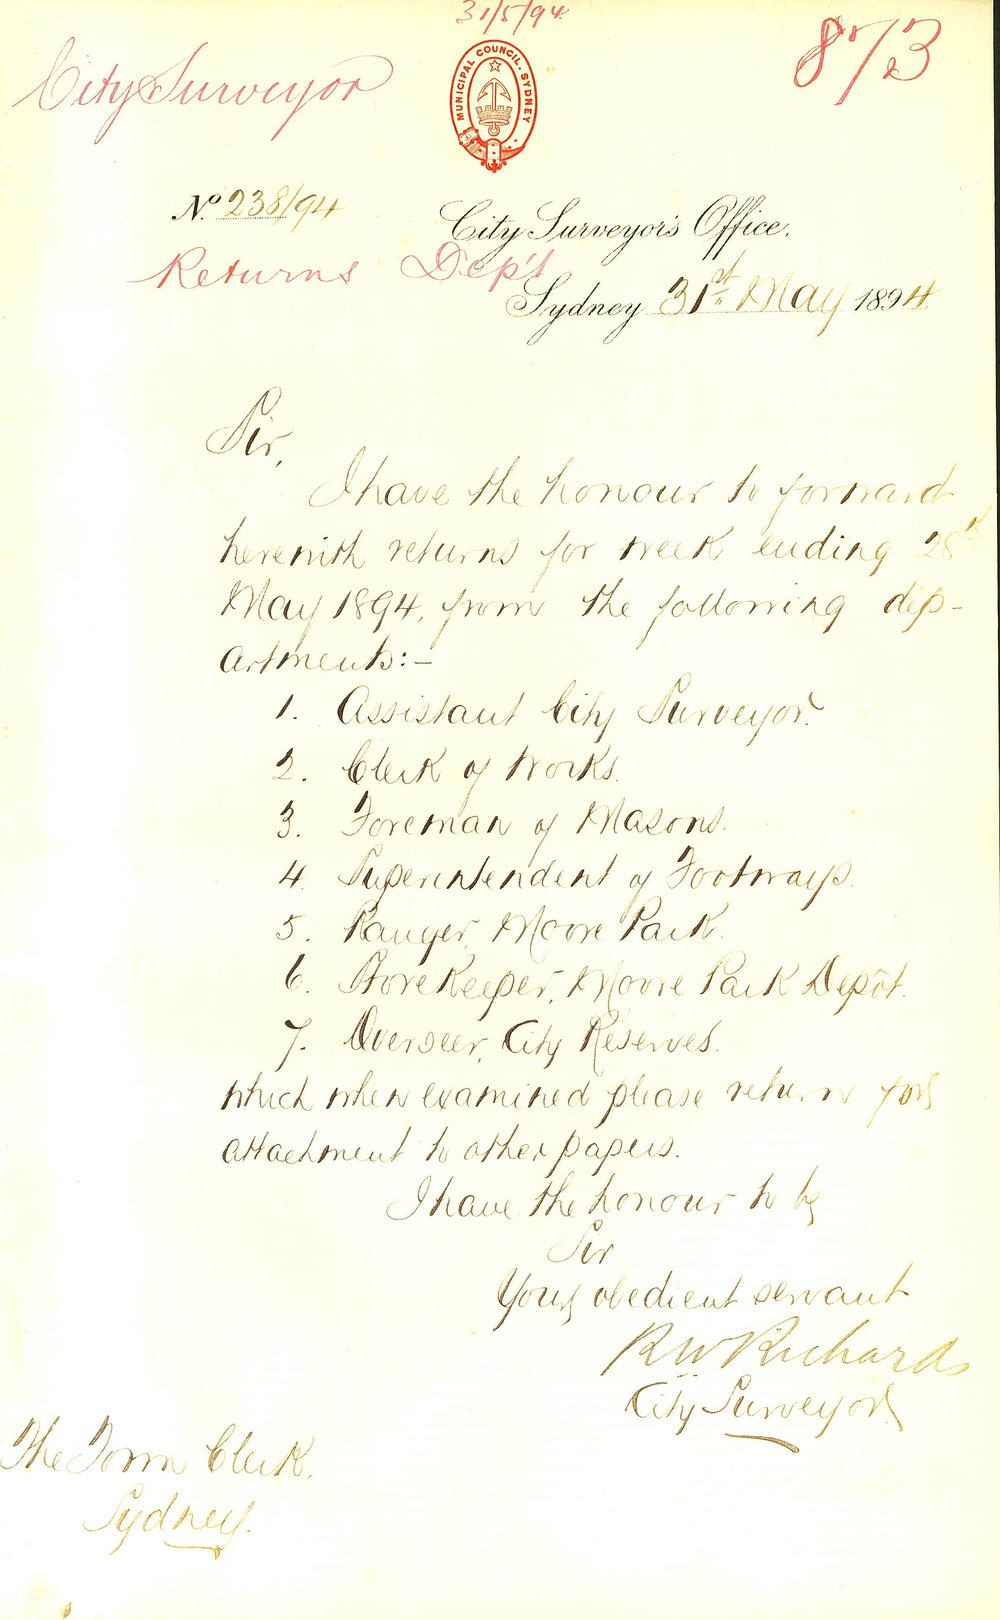 31/5/94
873
City Surveyor
MUNICIPAL COUNCIL. SYDNEY
No. 238/94
City Surveyor's Office.
Returns Dep't
Sydney 31st May 1894
Sir,
I have the honour to forward
herewith returns for week ending 28th
May 1894, from the following dep-
artments:-
1. Assistant City Surveyor.
2. Clerk of Works.
3. Foreman of Masons.
4. Superintendent of Footways.
5. Ranger, Moore Park.
6. Storekeeper, Moore Park Depôt.
7. Overseer, City Reserves.
which when examined please return for
attachment to other papers.
I have the honour to be
Sir
Your obedient servant
R W Richards
City Surveyor
The Town Clerk.
Sydney.